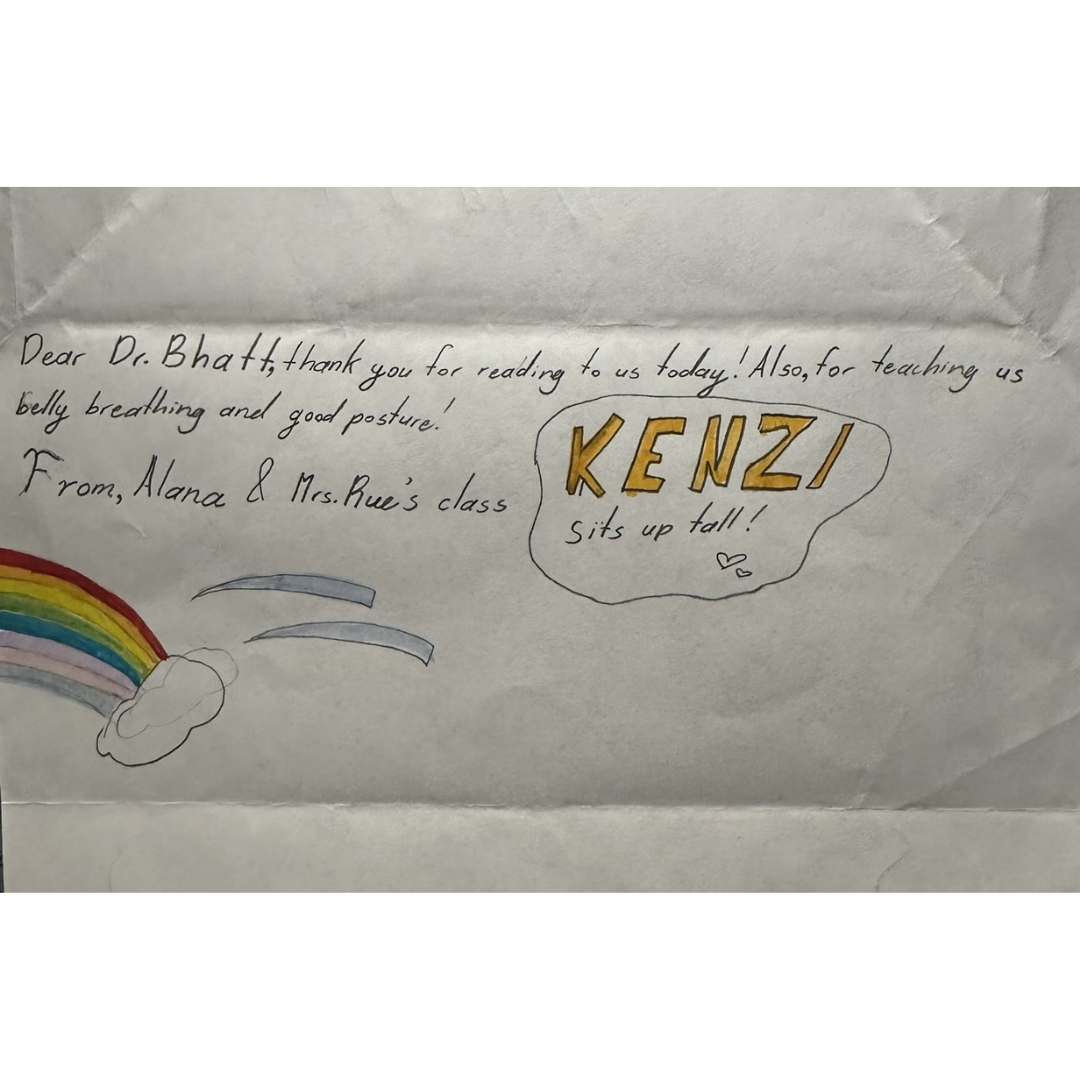 Dear Dr. Bhatt, thank you for reading to us today! Also, for teaching us
belly breathing and good posture!
From, Alana & Mrs. Rue's class
KENZI
sits up tall!